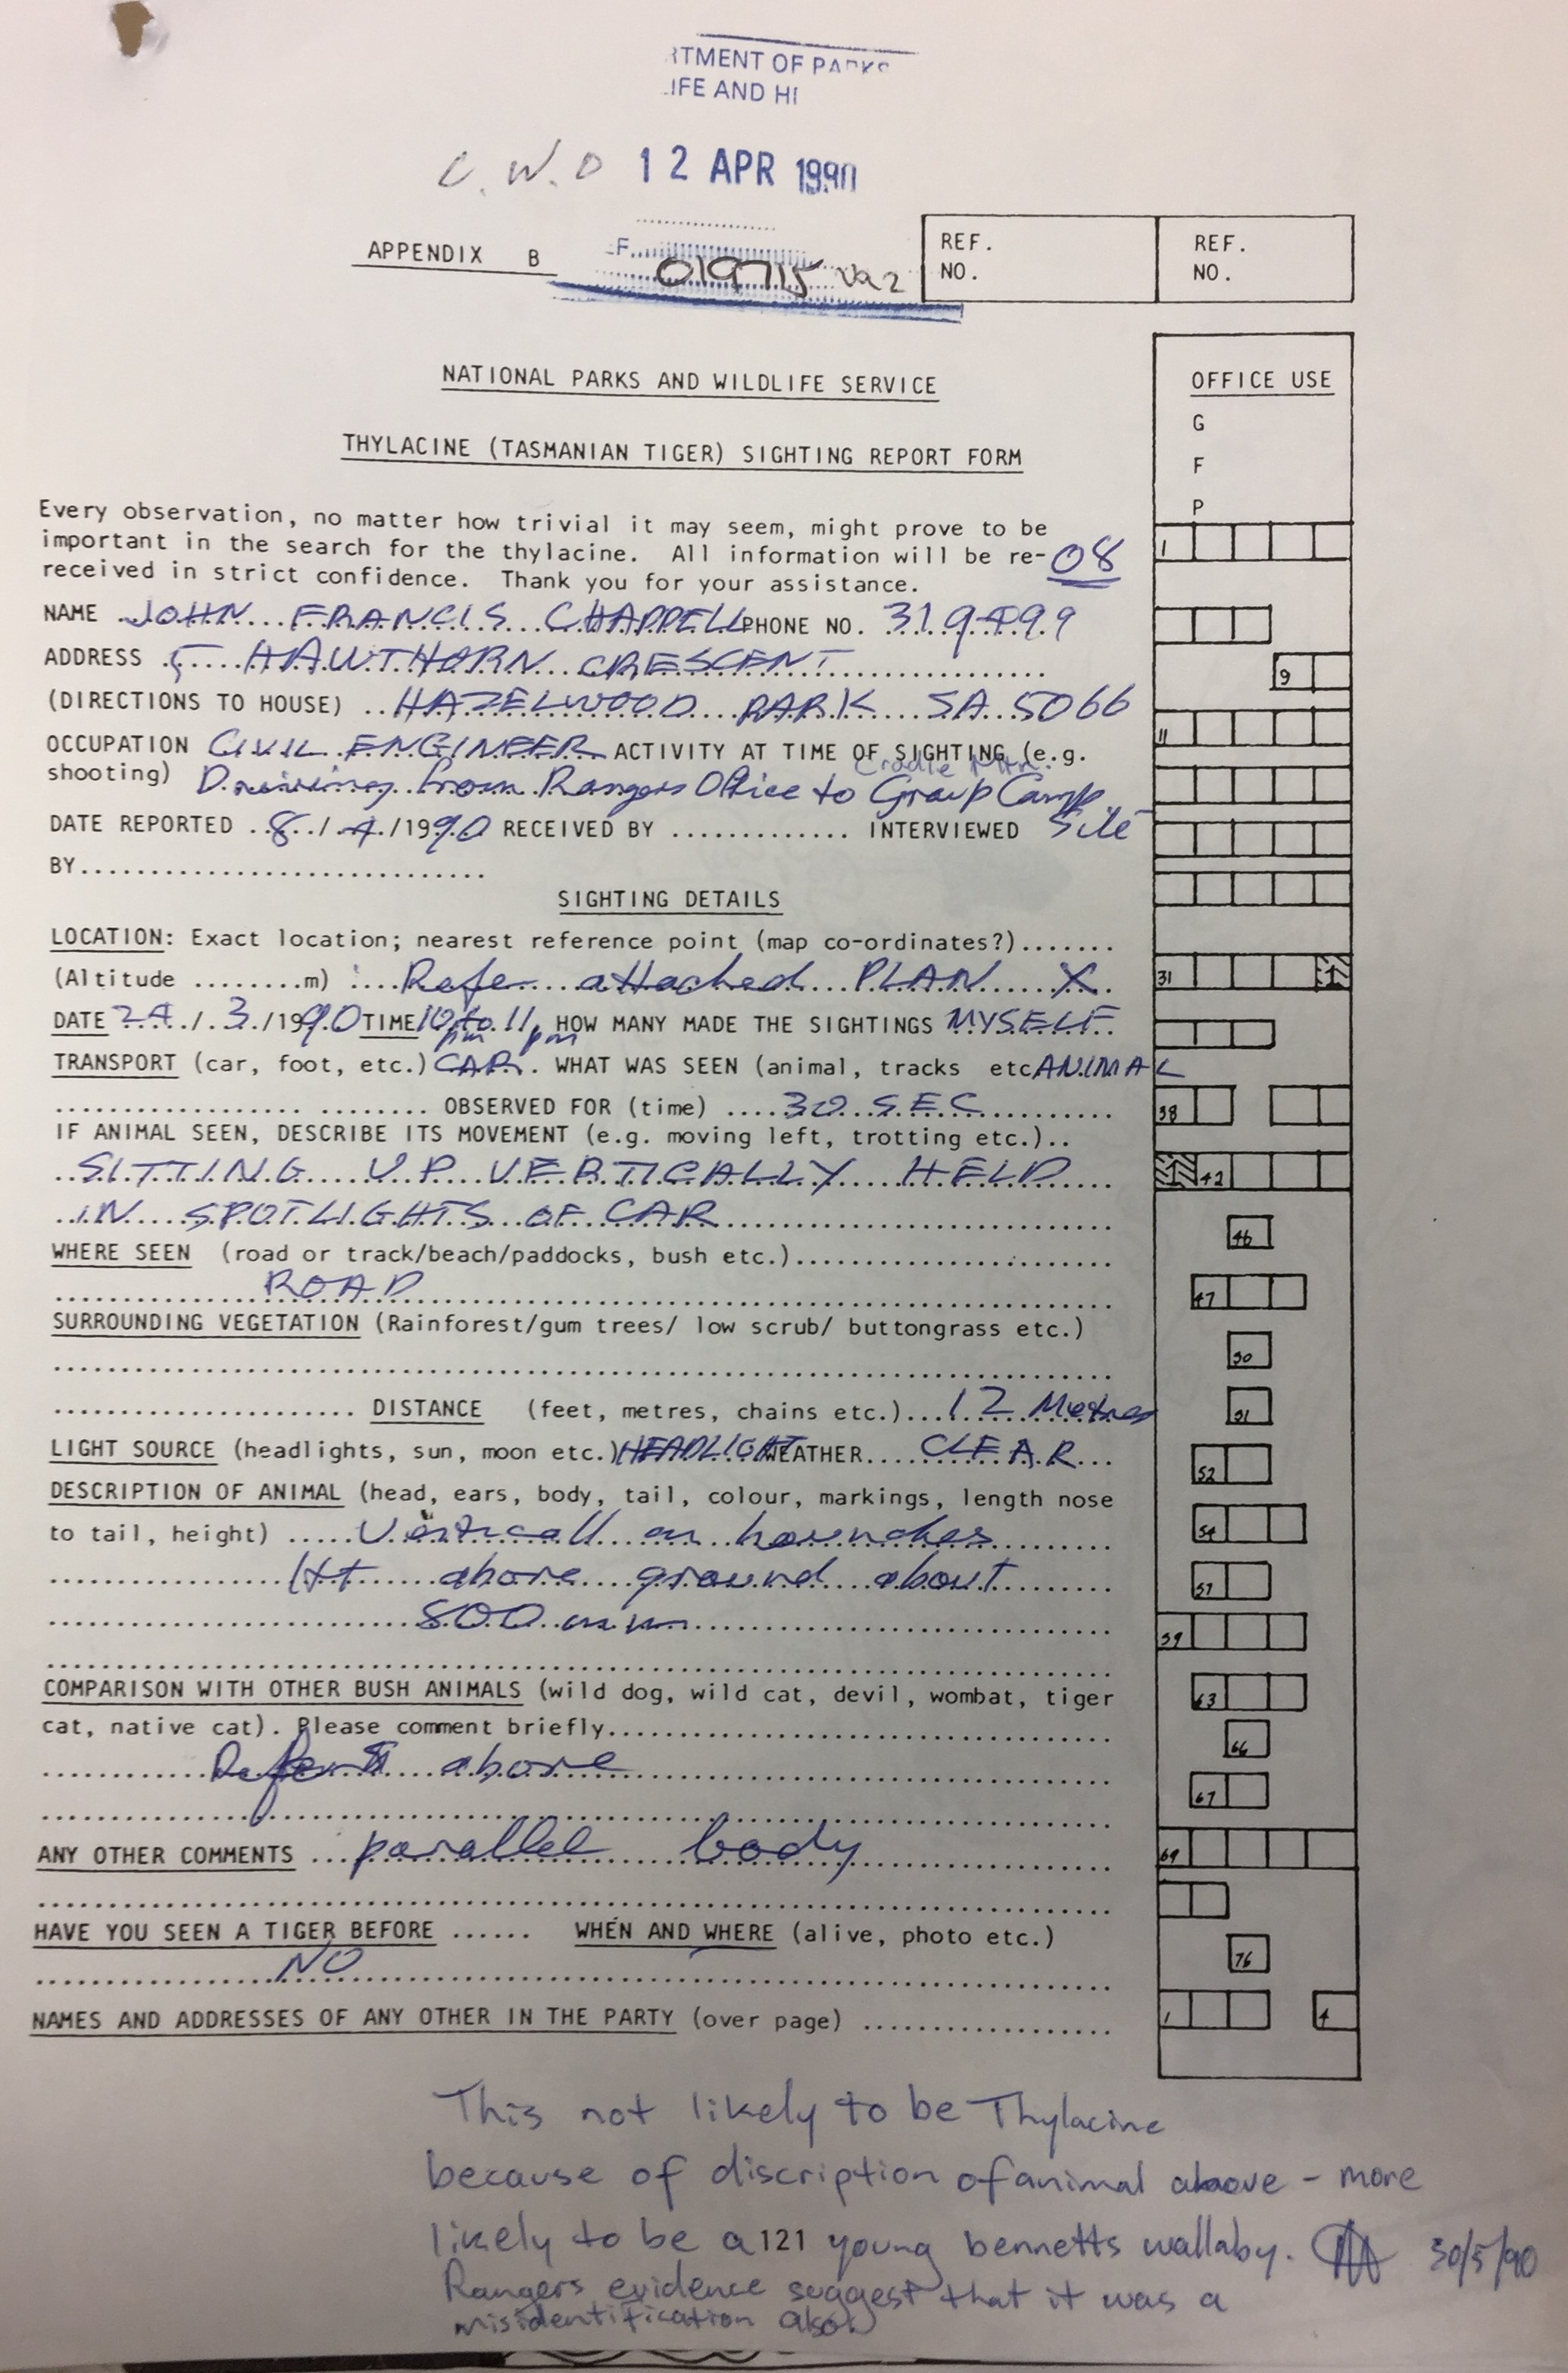 RTMENT OF PARKS
IFE AND HI
C.W.O 12 APR 1990
APPENDIX B F 019715 Va2
REF. NO.
REF. NO.
NATIONAL PARKS AND WILDLIFE SERVICE
OFFICE USE
G
F
P
THYLACINE (TASMANIAN TIGER) SIGHTING REPORT FORM
Every observation, no matter how trivial it may seem, might prove to be
important in the search for the thylacine. All information will be re- 08
received in strict confidence. Thank you for your assistance.
1
NAME JOHN FRANCIS CHAPPELL PHONE NO. 319499
ADDRESS 5 HAWTHORN CRESCENT
9
(DIRECTIONS TO HOUSE) HAZELWOOD PARK SA 5066
11
OCCUPATION CIVIL ENGINEER ACTIVITY AT TIME OF SIGHTING (e.g.
Cradle Mtn.
shooting) Driving from Rangers Office to Group Camp
DATE REPORTED 8/4/1990 RECEIVED BY ............. INTERVIEWED Site
BY.............................
SIGHTING DETAILS
LOCATION: Exact location; nearest reference point (map co-ordinates?).......
(Altitude ........m) : Refer attached PLAN X
31 1
DATE 24/3/1990 TIME 10 pm to 11 pm HOW MANY MADE THE SIGHTINGS MYSELF
TRANSPORT (car, foot, etc.) CAR. WHAT WAS SEEN (animal, tracks etc ANIMAL
OBSERVED FOR (time) 30 SEC
38
IF ANIMAL SEEN, DESCRIBE ITS MOVEMENT (e.g. moving left, trotting etc.)..
SITTING UP VERTICALLY HELD
1 42
IN SPOTLIGHTS OF CAR
46
WHERE SEEN (road or track/beach/paddocks, bush etc.)
ROAD
47
SURROUNDING VEGETATION (Rainforest/gum trees/ low scrub/ buttongrass etc.)
50
DISTANCE (feet, metres, chains etc.) 12 Metres
51
LIGHT SOURCE (headlights, sun, moon etc.) HEADLIGHT WEATHER CLEAR
52
DESCRIPTION OF ANIMAL (head, ears, body, tail, colour, markings, length nose
to tail, height) Verticall on haunches
54
Ht above ground about
57
800 mm
59
COMPARISON WITH OTHER BUSH ANIMALS (wild dog, wild cat, devil, wombat, tiger
63
cat, native cat). Please comment briefly
66
Refer above
67
ANY OTHER COMMENTS parallel body
69
HAVE YOU SEEN A TIGER BEFORE ...... WHEN AND WHERE (alive, photo etc.)
76
NO
NAMES AND ADDRESSES OF ANY OTHER IN THE PARTY (over page)
1 4
This not likely to be Thylacine
because of discription of animal above - more
likely to be a 121 young bennetts wallaby. 30/5/90
Rangers evidence suggest that it was a
misidentification also